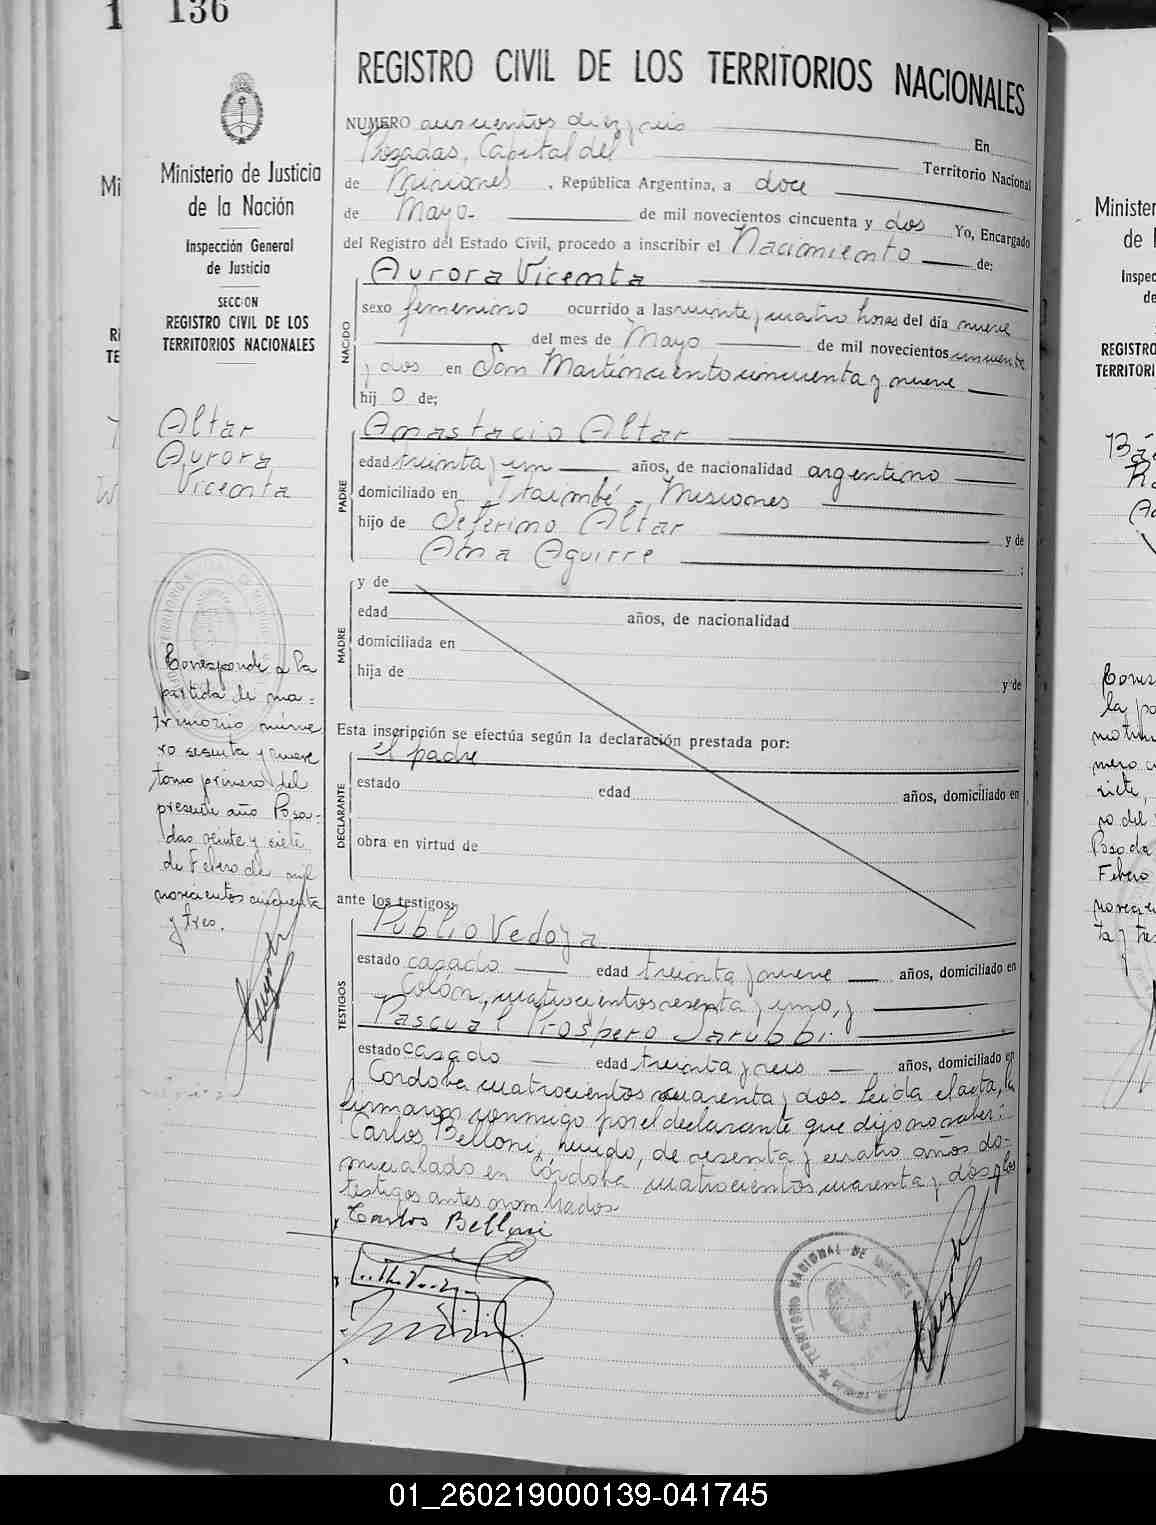 136
REGISTRO CIVIL DE LOS TERRITORIOS NACIONALES
Ministerio de Justicia
de la Nación
Inspección General
de Justicia
SECCION
REGISTRO CIVIL DE LOS
TERRITORIOS NACIONALES
Altar
Aurora
Vicenta
Corresponde a la
partida de ma-
trimonio núme
ro sesenta y nueve
tomo primero del
presente año Posa-
das veinte y siete
de Febrero de mil
novecientos cincuenta
y tres.
NUMERO doscientos diez y seis En
Posadas, Capital del Territorio Nacional
de Misiones, República Argentina, a doce
de Mayo. de mil novecientos cincuenta y dos Yo, Encargado
del Registro del Estado Civil, procedo a inscribir el Nacimiento de:
NACIDO
Aurora Vicenta
sexo femenino ocurrido a las veinte y cuatro horas del día nueve
del mes de Mayo de mil novecientos cincuenta
y dos en San Martín ciento cincuenta y nueve
hij o de;
PADRE
Anastacio Altar
edad treinta y un años, de nacionalidad argentino
domiciliado en Itaimbé - Misiones
hijo de Seferino Altar y de
Ana Aguirre ;
MADRE
y de
edad años, de nacionalidad
domiciliada en
hija de y de
Esta inscripción se efectúa según la declaración prestada por:
DECLARANTE
el padre
estado edad años, domiciliado en
obra en virtud de
ante los testigos:
TESTIGOS
Publio Vedoya
estado casado edad treinta y nueve años, domiciliado en
Colón, cuatrocientos sesenta y uno, y
Pascual Prospero Sarubbi.
estado casado edad treinta y seis años, domiciliado en
Cordoba cuatrocientos cuarenta y dos. Leida el acta, la
firmaron conmigo por el declarante que dijo no saber:
Carlos Belloni, viudo, de sesenta y cuatro años do-
miciliado en Córdoba cuatrocientos cuarenta y dos y los
testigos antes nombrados
Carlos Belloni
TERRITORIO NACIONAL DE MISIONES
Minister
de l
Inspec
de
REGISTRO
TERRITORI
01_260219000139-041745